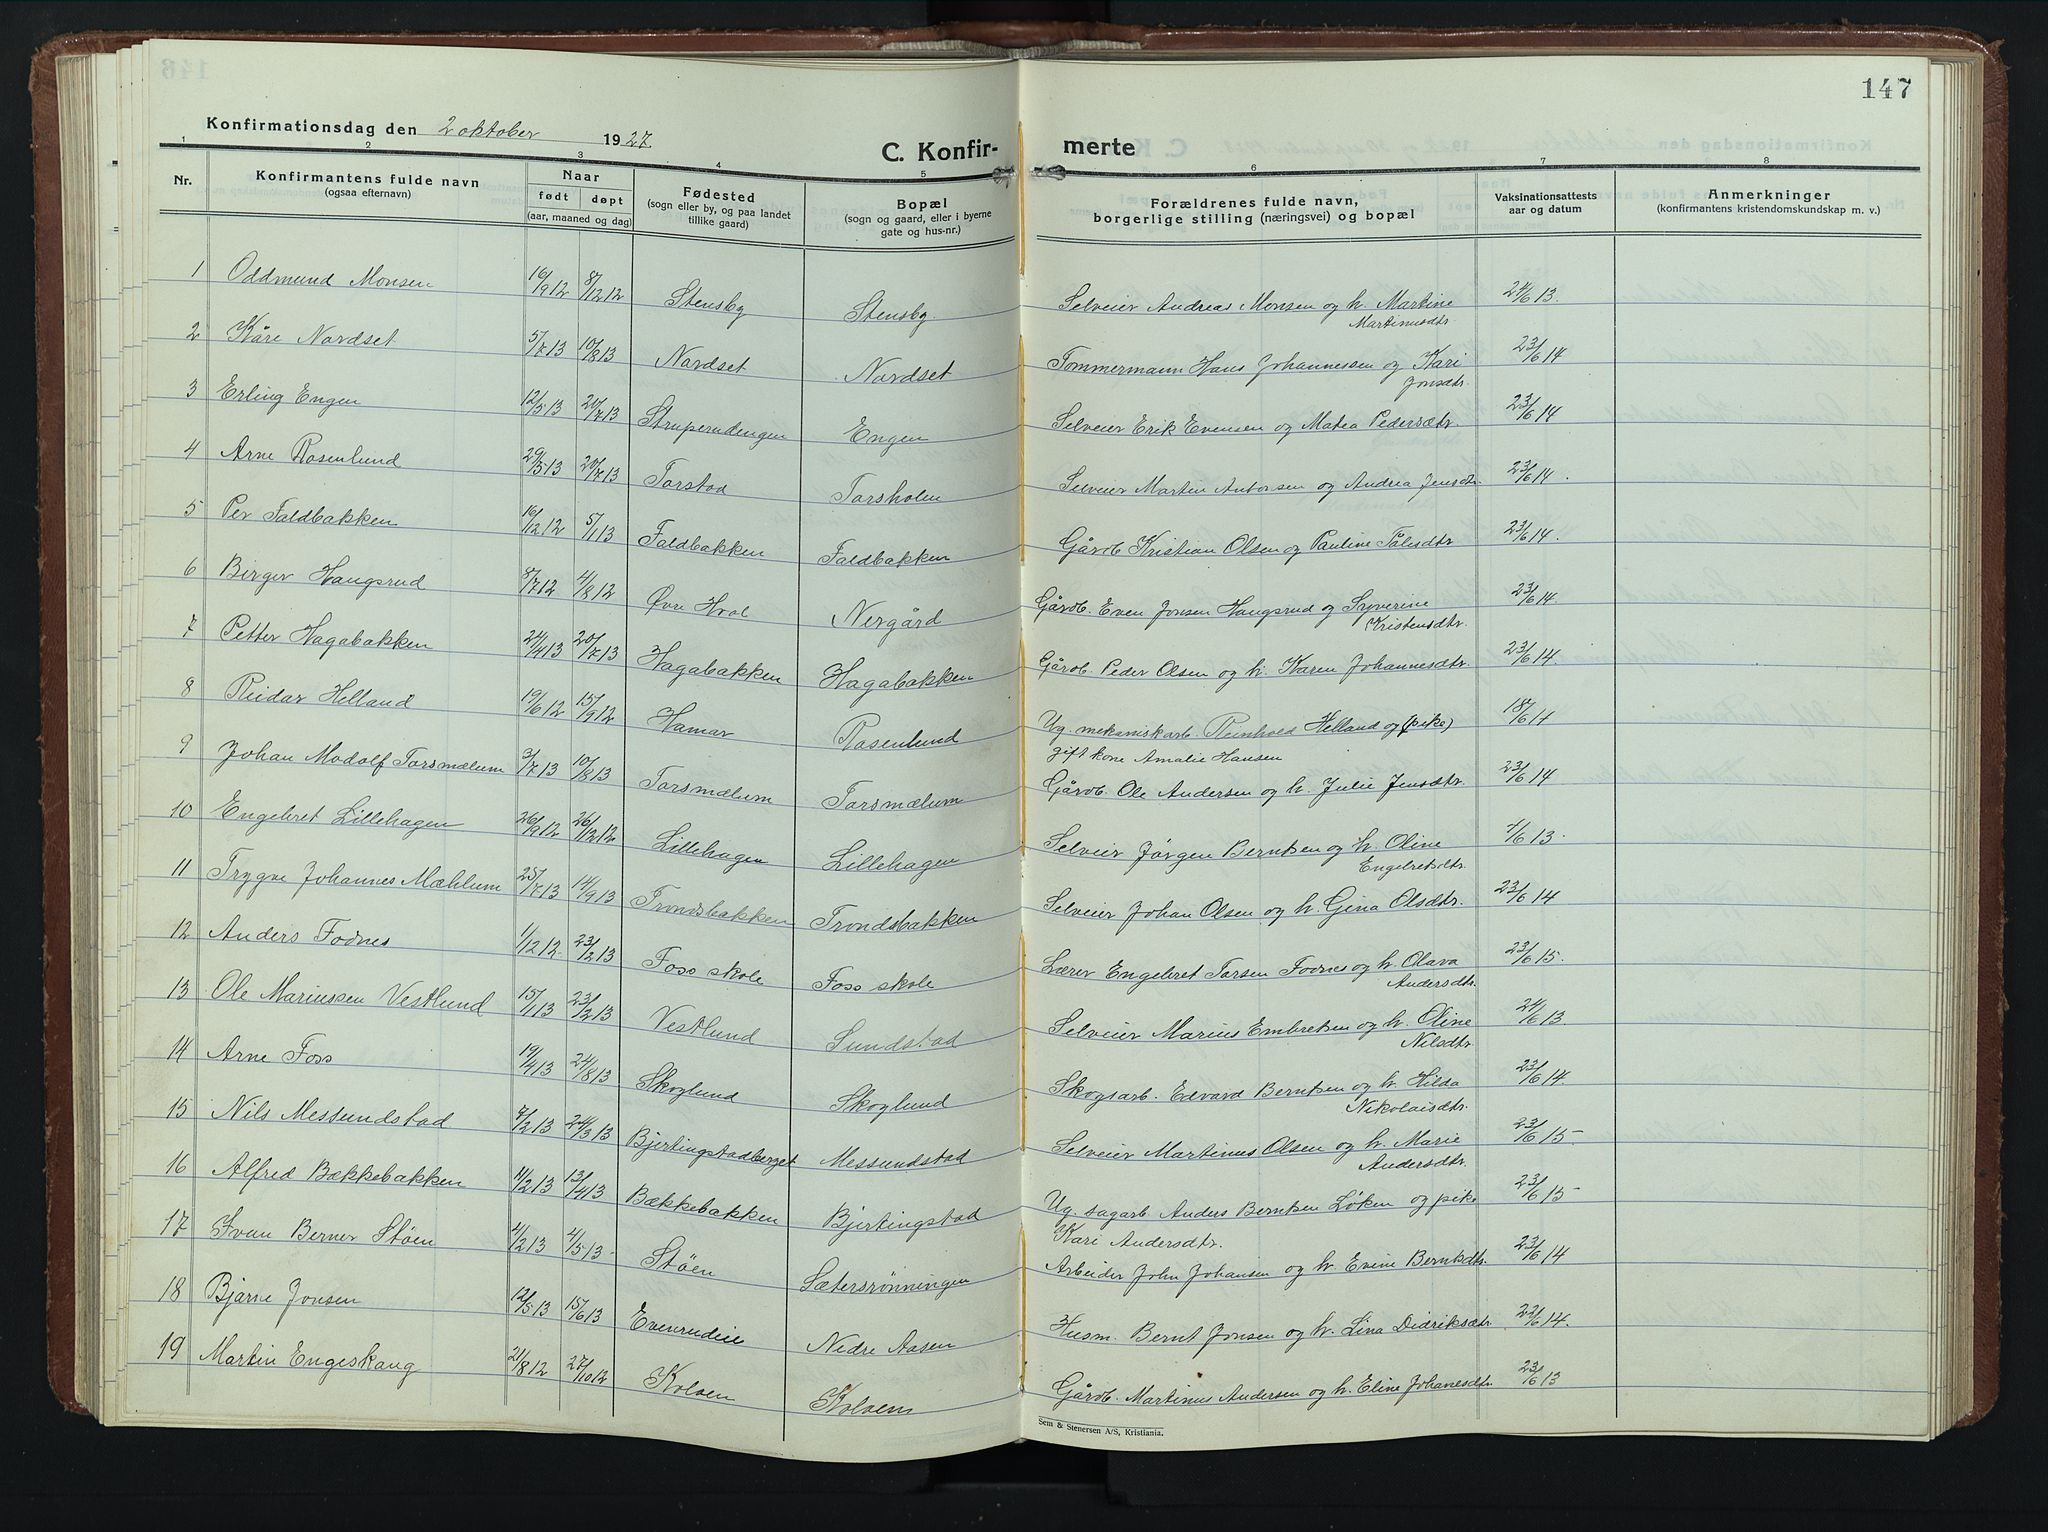 147
Konfirmationsdag den 2 oktober 1927.
C. Konfirmerte
1 2 3 4 5 6 7 8
Nr. Konfirmantens fulde navn (ogsaa efternavn) Naar født døpt (aar, maaned og dag) Fødested (sogn eller by, og paa landet tillike gaard) Bopæl (sogn og gaard, eller i byerne gate og hus-nr.) Forældrenes fulde navn, borgerlige stilling (næringsvei) og bopæl Vaksinationsattests aar og datum Anmerkninger (konfirmantens kristendomskundskap m. v.)
1 Oddmund Monsen 16/9 12 8/12 12 Stensby Stensby. Selveier Andreas Monsen og h. Martine Martinusdtr. 24/6 13.
2 Kåre Nordset 5/7 13 10/8 13 Nordset Nordset Tømmermann Hans Johannessen og Kari Jonsdtr. 23/6 14
3 Erling Engen 12/5 13 20/7 13 Struperudengen Engen Selveier Erik Evensen og Matea Pedersdtr. 23/6 14
4 Arne Rosenlund 29/5 13 20/7 13 Torstad Torsholen Selveier Martin Antonsen og Andrea Jensdtr. 23/6 14.
5 Per Faldbakken 16/12 12 5/1 13 Faldbakken Faldbakken Gårdb. Kristian Olsen og Pauline Pålsdtr 23/6 14.
6 Birger Haugsrud 8/7 12 4/8 12 Øvre Hvol Nergård Gårdb. Even Jonsen Haugsrud og Syverine Kristensdtr. 23/6 14.
7 Petter Hagabakken 24/4 13 20/7 13 Hagabakken Hagabakken Gårdb. Peder Olsen og h. Karen Johannesdtr. 23/6 14.
8 Reidar Helland 19/6 12 15/9 12 Hamar Rosenlund Ug. mekaniskarb. Reinhold Helland og (pike) gift kone Amalie Hansen 18/6 14
9 Johan Modolf Torsmælum 3/7 13 10/8 13 Torsmælum Torsmælum Gårdb. Ole Andersen og h. Julie Jensdtr. 23/6 14
10 Engebret Lillehagen 26/9 12 26/12 12 Lillehagen Lillehagen Selveier Jörgen Berntsen og h. Oline Engebretsdtr. 4/6 13.
11 Trygve Johannes Mæhlum 25/7 13 14/9 13 Trondsbakken Trondsbakken Selveier Johan Olsen og h. Gina Olsdtr. 23/6 14
12 Anders Fodnes 1/12 12. 23/2 13 Foss skole Foss skole Lærer Engebret Torsen Fodnes og h. Olava Andersdtr. 23/6 15.
13 Ole Mariussen Vestlund 15/1 13 23/2 13 Vestlund Sundstad Selveier Marius Embretsen og h. Oline Nilsdtr. 24/6 13.
14 Arne Foss 19/4 13 24/8 13 Skoglund Skoglund Skogsarb. Edvard Berntsen og h. Hilda Nikolaisdtr. 23/6 14
15 Nils Messundstad 7/2 13 24/3 13 Bjertingstadberget Messundstad Selveier Martinus Olsen og h. Marie Andersdtr. 23/6 15-
16 Alfred Bækkebakken 11/2 13 13/4 13 Bækkebakken Bjertingstad Ug. sagarb. Anders Berntsen Løken og pike Kari Andersdtr. 23/6 15-
17 Ivan Berner Støen 4/2 13 4/5 13- Støen Sætersrönningen Arbeider John Johansen og h. Evine Berntsdtr. 23/6 14
18 Bjarne Jonsen 12/5 13 15/6 13 Evenrudeie Nedre Aasen Husm. Bernt Jonsen og h. Lina Didriksdtr. 22/6 14.
19 Martin Engeskaug 21/8 12 27/10 12 Kolven Kolven Gårdb. Martinus Andersen og h. Eline Johanesdtr. 23/6 13
Sem & Stenersen A/S, Kristiania.